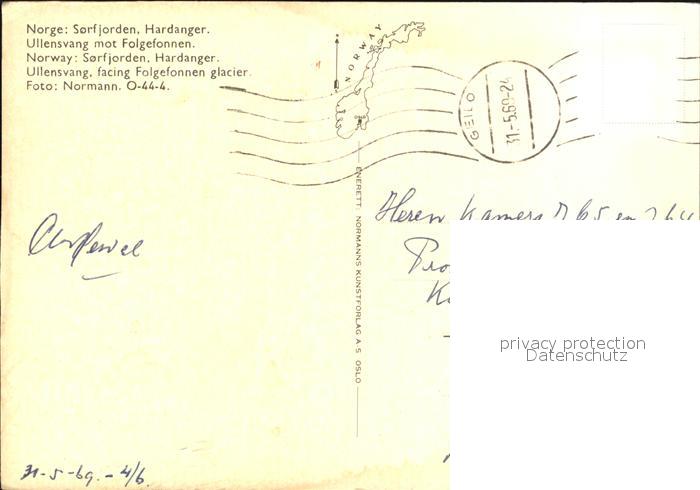 Norge: Sørfjorden, Hardanger.
Ullensvang mot Folgefonnen.
Norway: Sørfjorden, Hardanger.
Ullensvang, facing Folgefonnen glacier.
Foto: Normann. O-44-4.
NORWAY
OSLO
GEILO
31.-5.69-24
ENERETT: NORMANNS KUNSTFORLAG A-S OSLO
Heren Kamers 765 en
Pro
privacy protection
Datenschutz
31-5-69.-4/6.